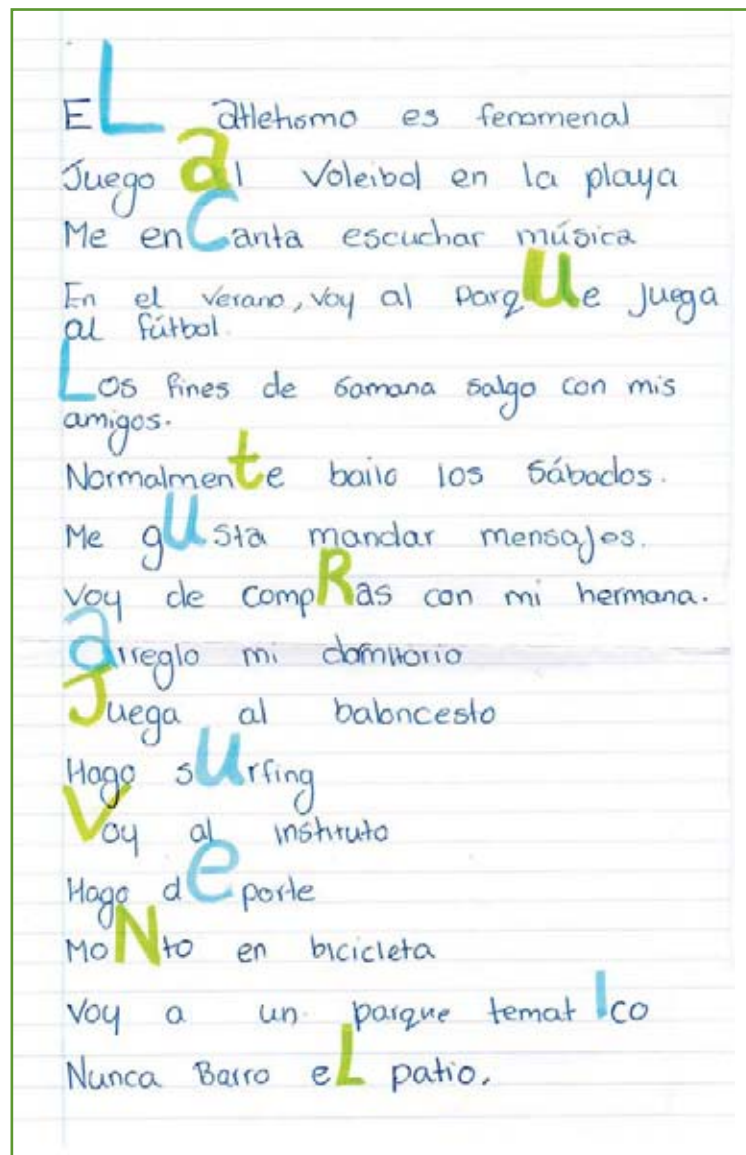 EL atletismo es fenomenal
Juego al Voleibol en la playa
Me enCanta escuchar música
En el verano, voy al parqUe juega
al fútbol.
Los fines de samana salgo con mis
amigos.
Normalmente bailo los sábados.
Me gUsta mandar mensajes.
Voy de compRas con mi hermana.
arreglo mi dormitorio
Juega al baloncesto
Hago sUrfing
Voy al instituto
Hago deporte
MoNto en bicicleta
Voy a un parque tematIco
Nunca Barro eL patio.